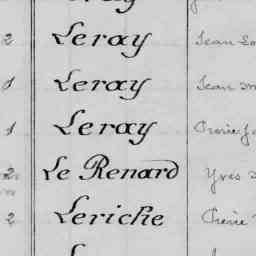 2 Leray Jean
1 Leray Jean
1 Leray Pierre
2 Le Renard Yves
2 Leriche Pierre